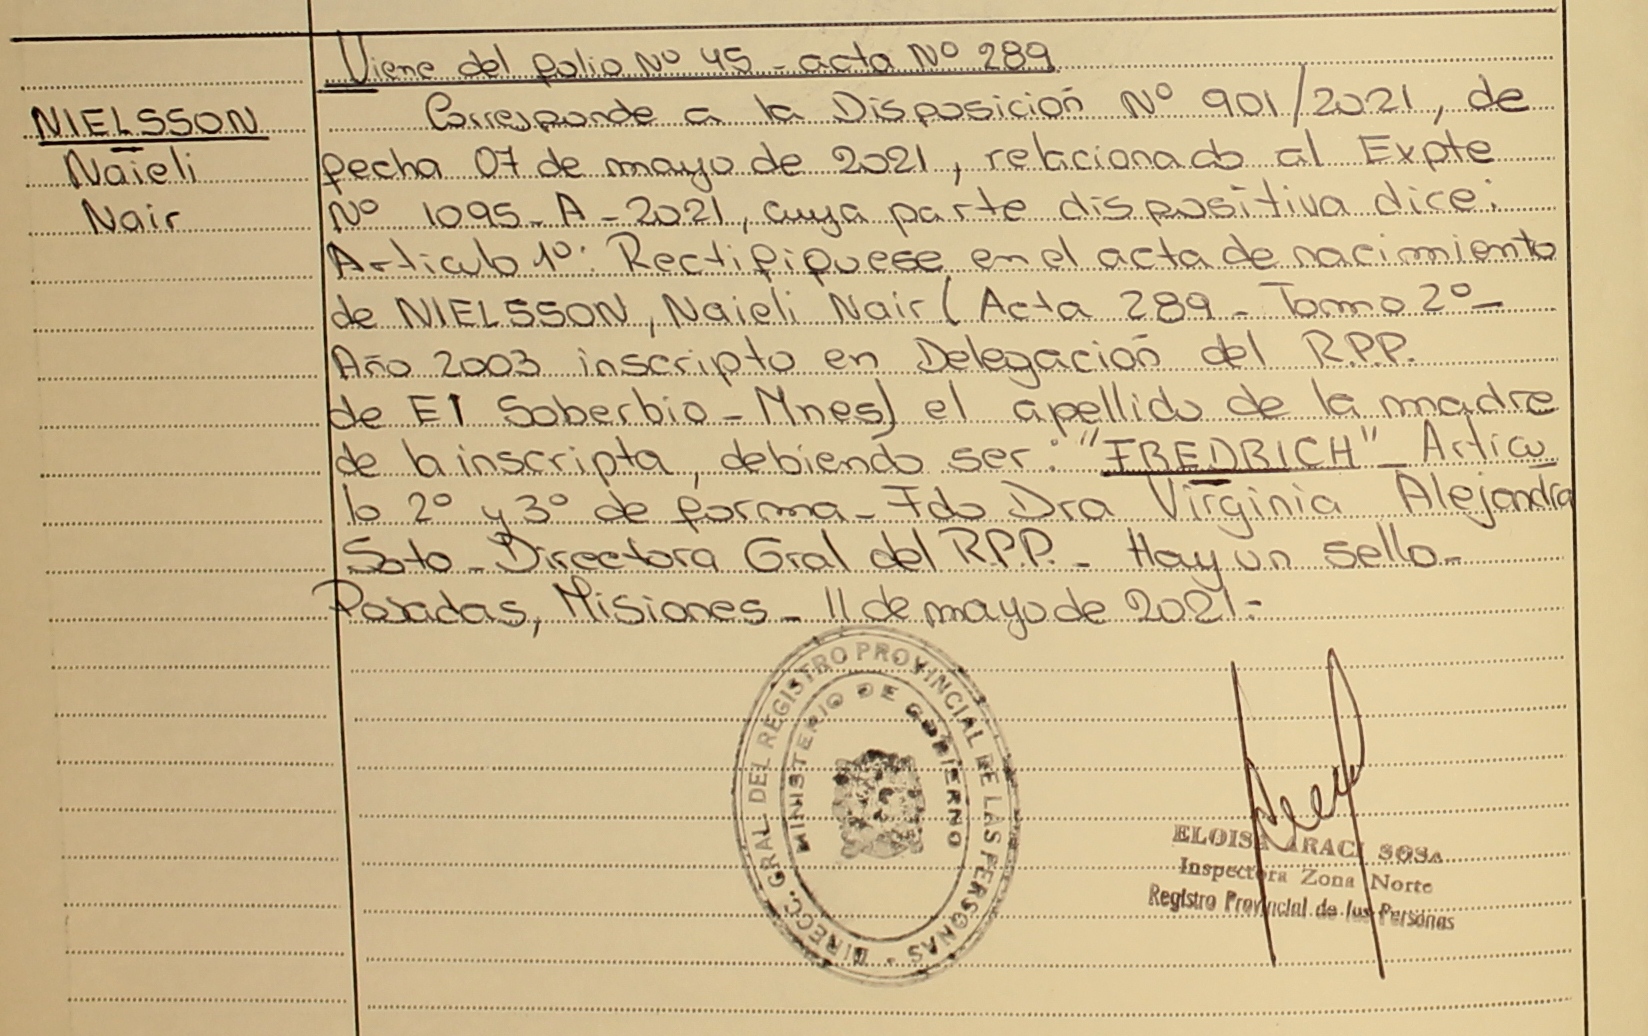 Viene del folio Nº 45 - acta Nº 289
NIELSSON
Naieli
Nair
Corresponde a la Disposición Nº 901/2021, de
fecha 07 de mayo de 2021, relacionado al Expte
Nº 1095-A-2021, cuya parte dispositiva dice:
Artículo 1º: Rectifíquese en el acta de nacimiento
de NIELSSON, Naieli Nair (Acta 289 - Tomo 2º -
Año 2003 inscripto en Delegación del R.P.P.
de El Soberbio - Mnes) el apellido de la madre
de la inscripta, debiendo ser: "FREDRICH" - Artícu
lo 2º y 3º de forma - Fdo Dra Virginia Alejandra
Soto - Directora Gral del R.P.P. - Hay un sello -
Posadas, Misiones - 11 de mayo de 2021.-
DIRECC. GRAL. DEL REGISTRO PROVINCIAL DE LAS PERSONAS -
MINISTERIO DE GOBIERNO
ELOISA ARACI SOSA
Inspectora Zona Norte
Registro Provincial de las Personas